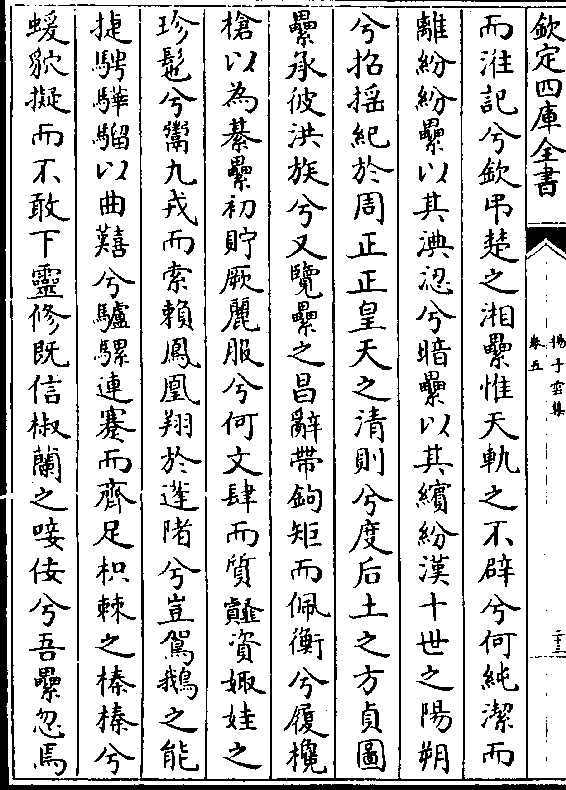 欽定四庫全書
揚子雲集
卷五
二十三
而淮記兮欽弔楚之湘纍惟天軌之不辟兮何純潔而
離紛紛纍以其淟涊兮暗纍以其繽紛漢十世之陽朔
兮招揺紀於周正正皇天之清則兮度后土之方貞圖
纍承彼洪族兮又覽纍之昌辭帶鉤矩而佩衡兮履欃
槍以為綦纍初貯厥麗服兮何文肆而質𩐎資娵娃之
珍髢兮鬻九戎而索賴鳳凰翔於蓬陼兮豈駕鵝之能
捷騁驊騮以曲囏兮驢騾連蹇而齊足枳棘之榛榛兮
蝯貁擬而不敢下靈修既信椒蘭之唼佞兮吾纍忽焉